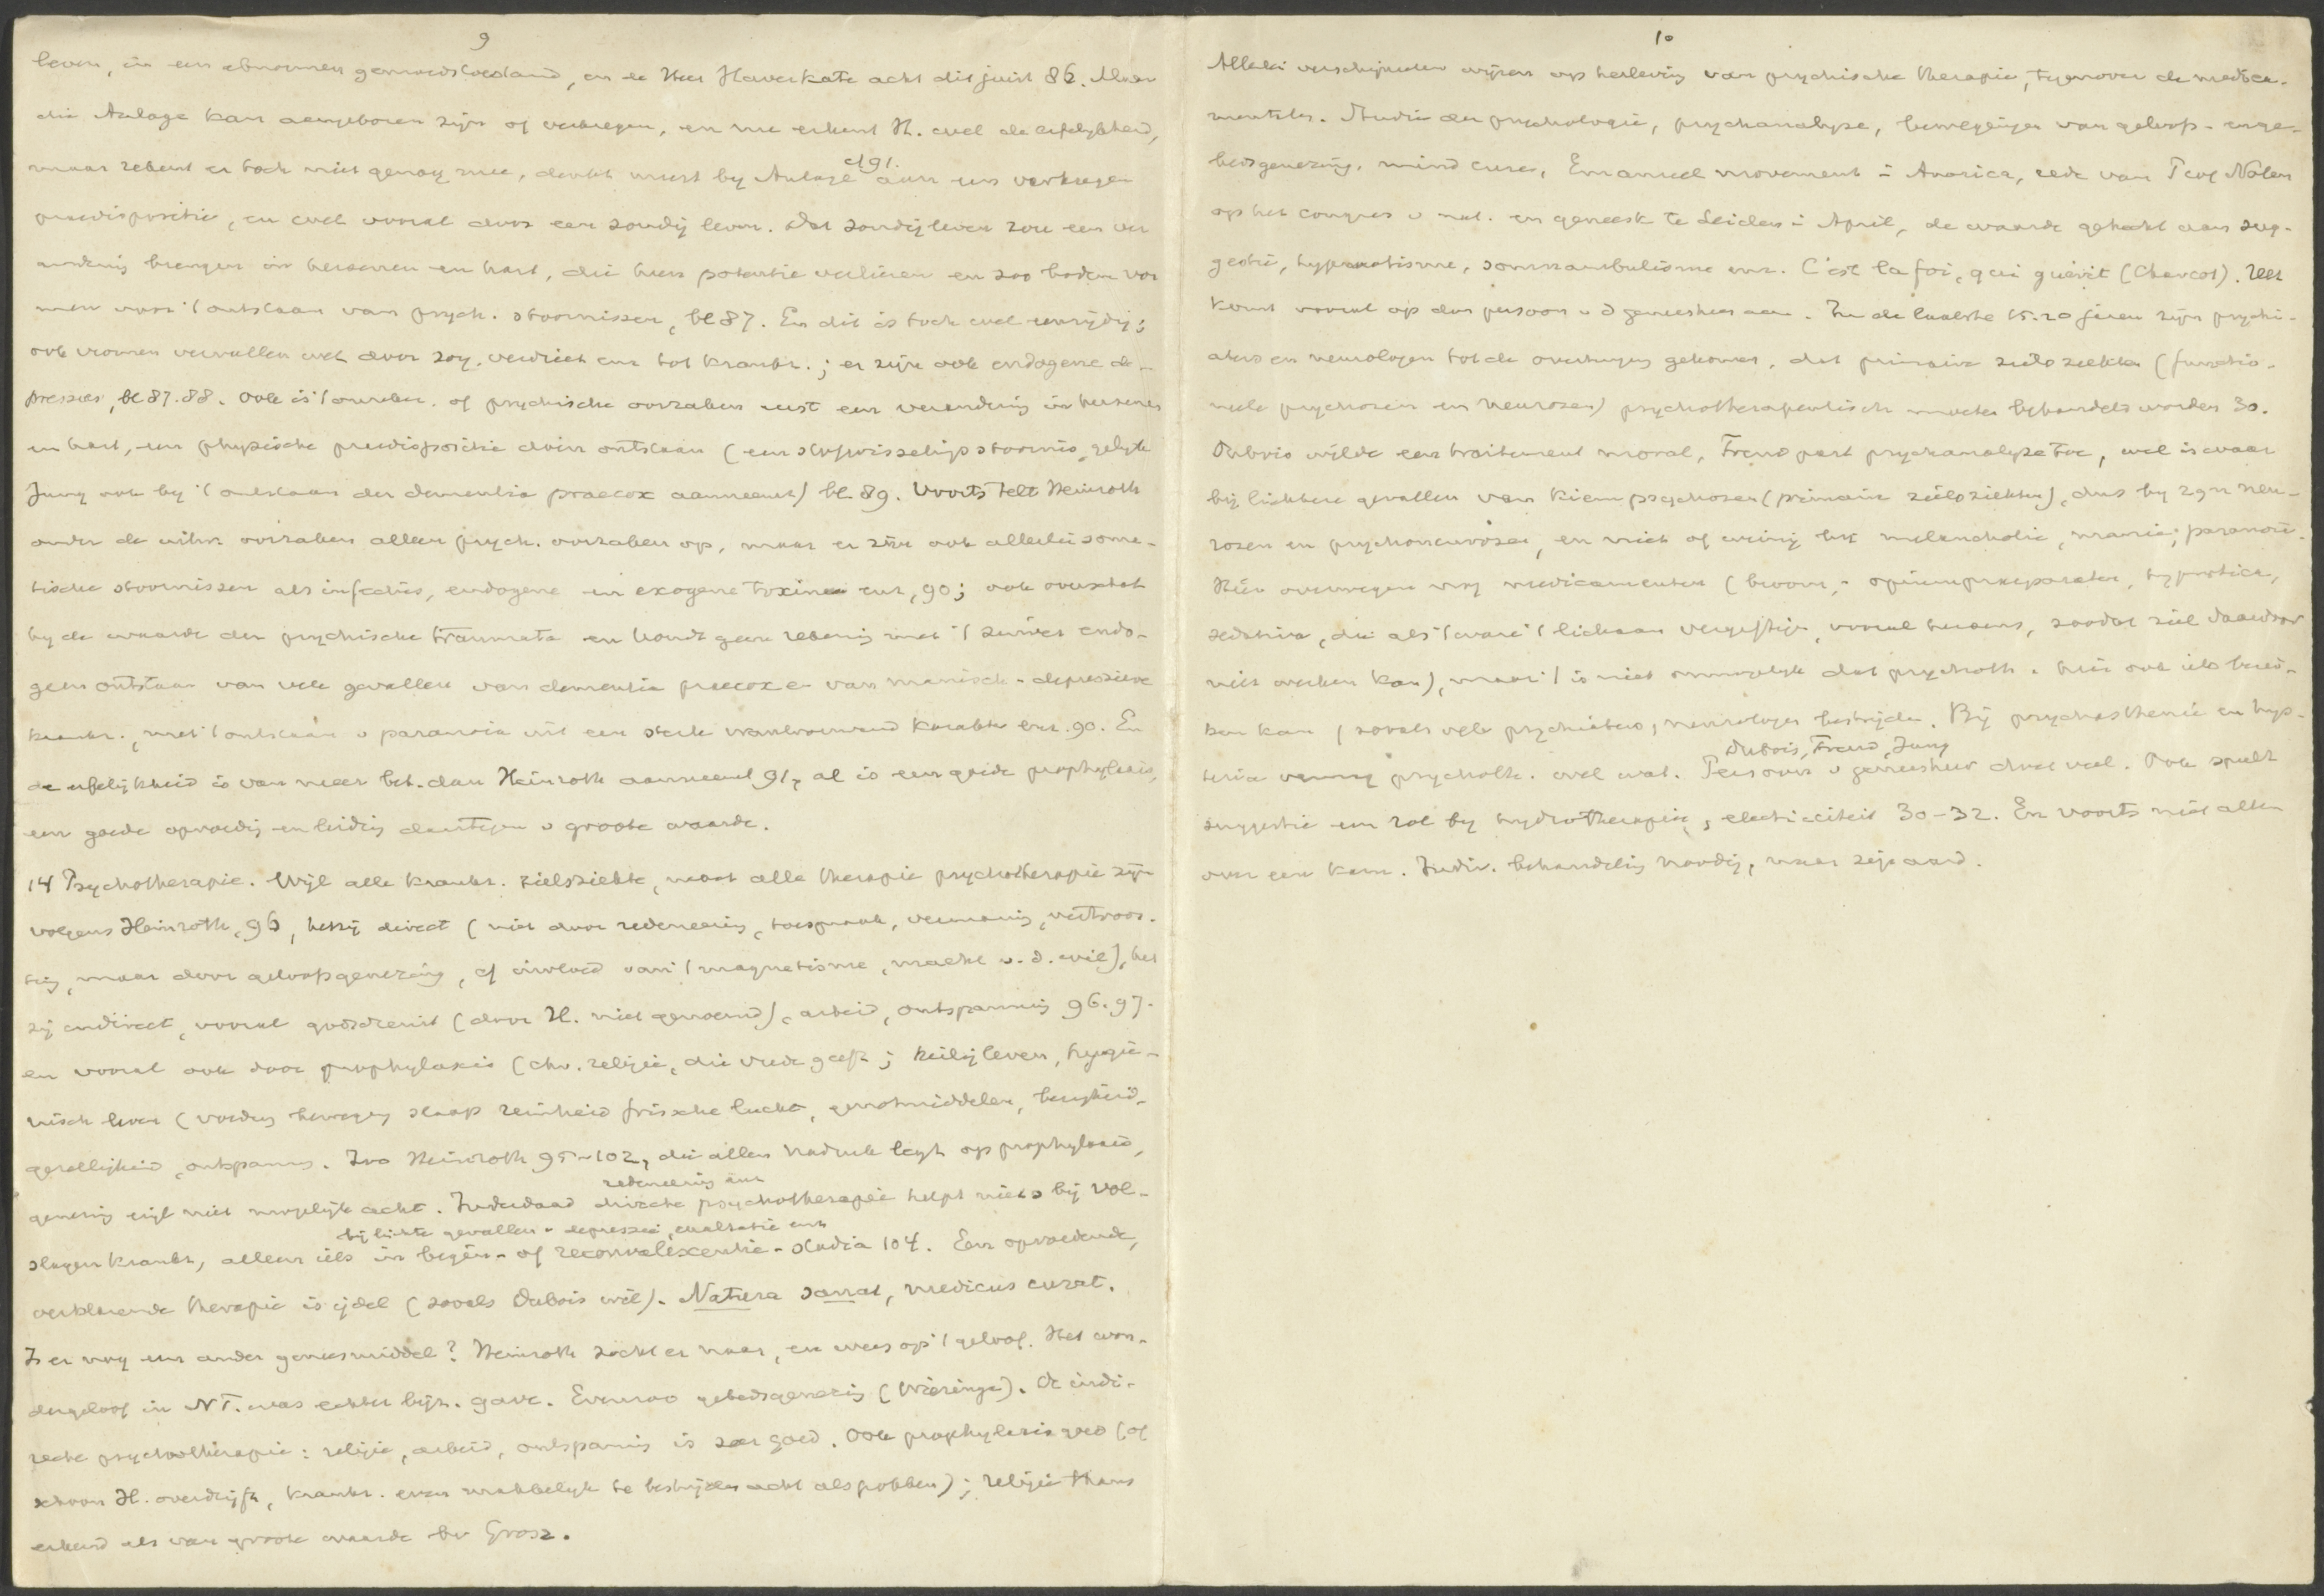 9
leven, in een abnormen gemoedstoestand, en de Heer Haverkate acht dit juist 86. Maar
die Anlage kan aangeboren zijn of verkregen, en nu erkent H. wel de erfelijkheid,
maar rekent er toch niet genoeg mee, denkt meest by Anlage aan een verkregen
cf 91.
praedispositie, en wel vooral door een zondig leven. Dat zondig leven zou een ver
andering brengen in hersenen en hart, die hun potentie verliezen en zoo bodem vor
men voor 't ontstaan van psych. stoornissen, bl 87. En dit is toch wel eenzijdig;
ook vromen vervallen wel door zorg, verdriet enz tot krankz.; er zijn ook endogene de-
pressies, bl 87.88. Ook is 't onzeker of psychische oorzaken eerst een verandering in hersenen
en hart, een physische praedispositie doen ontstaan (een stofwisselingsstoornis, gelijk
Jung ook by 't ontstaan der dementia praecox aanneemt) bl. 89. Voorts telt Heinroth
onder de uitw. oorzaken alleen psych. oorzaken op, maar er zijn ook allerlei soma-
tische stoornissen als infecties, endogene en exogene toxinen enz, 90; ook overschat
hy de waarde der psychische traumata en houdt geen rekening met 't zuiver endo-
geen ontstaan van vele gevallen van dementia praecox en van manisch-depressieve
krankz., met 't ontstaan v paranoia uit een sterk wantrouwend karakter enz. 90. En
de erfelijkheid is van meer bet. dan Heinroth aanneemt 91, al is een goede prophylaxis,
een goede opvoeding en leiding daartegen v groote waarde.
14 Psychotherapie. Wijl alle krankz. zielsziekte, moet alle therapie psychotherapie zijn
volgens Heinroth, 96, hetzij direct (niet door redeneering, toespraak, vermaning, vertroos-
ting, maar door geloofsgenezing, of invloed van 't magnetisme, macht v. d. wil), het
zij indirect, vooral godsdienst (door H. niet genoemd), arbeid, ontspanning 96.97.
en vooral ook door prophylaxis (chr. religie, die vrede geeft; heilig leven, hygie-
nisch leven (voeding beweging slaap reinheid frissche lucht, genotmiddelen, bezigheid,
gezelligheid, ontspanning. Zoo Heinroth 95-102, die allen nadruk legt op prophylaxis,
genezing wijl niet mogelijk acht. Inderdaad directe psychotherapie helpt niets bij vol-
redeneering enz
slagen krankz, alleen iets in begin- of reconvalescentie-stadia 104. Een opvoedende,
bij lichte gevallen v depressie, exaltatie enz
verklarende therapie is ijdel (zooals Dubois wil). Natura sanat, medicus curat.
Is er nog een ander geneesmiddel? Heinroth zocht er naar, en wees op 't geloof. Het won-
dergeloof in NT. was echter bijz. gave. Evenzoo gebedsgenezing (Wieringa). De indi-
recte psychotherapie: religie, arbeid, ontspanning is zeer goed. Ook prophylaxis goed (of
schoon H. overdrijft, krankz. even makkelijk te bestrijden acht als pokken); religie thans
erkend als van groote waarde bv Grosz.
10
Allerlei verschijnselen wijzen op herleving van psychische therapie, tegenover de medica-
menteele. Studie der psychologie, psychanalyse, bewegingen van geloofs- en ge-
bedsgenezing, mind cures, Emanuel movement in America, rede van Prof Nolen
op het congres v nat. en geneesk te Leiden in April, de waarde gehecht aan sug-
gestie, hypnotisme, somnambulisme enz. C'est la foi, qui guérit (Charcot). Het
komt vooral op den persoon v d geneesheer aan. In de laatste 15.20 jaren zijn psychi-
aters en neurologen tot de overtuiging gekomen, dat primaire zielsziekten (functio-
neele psychosen en neurosen) psychotherapeutisch moeten behandeld worden 30.
Dubois wilde een traitement moral, Freud past psychanalyse toe, wel is waar
bij lichtere gevallen van kiempsychosen (primaire zielsziekten), dus by zgn neu-
rosen en psychoneurosen, en niet of weinig bij melancholie, manie, paranoia.
Hier overwegen nog medicamenten (broom, - opiumpraeparaten, hypnotica,
sedativa, die als 't ware 't lichaam vergiftigen, vooral hersens, zoodat ziel daardoor
niet werken kan), maar 't is niet onmogelijk dat psychoth. hier ook iets berei-
ken kan, (zooals vele psychiaters, neurologen bestrijden. Bij psychasthenie en hys-
terie vermag psychoth. wel wat. Persoon v geneesheer doet veel. Ook speelt
Dubois, Freud, Jung
suggestie een rol by hydrotherapie, electriciteit 30-32. En voorts niet allen
over een kam. Indiv. behandeling noodig, naar zijn aard.